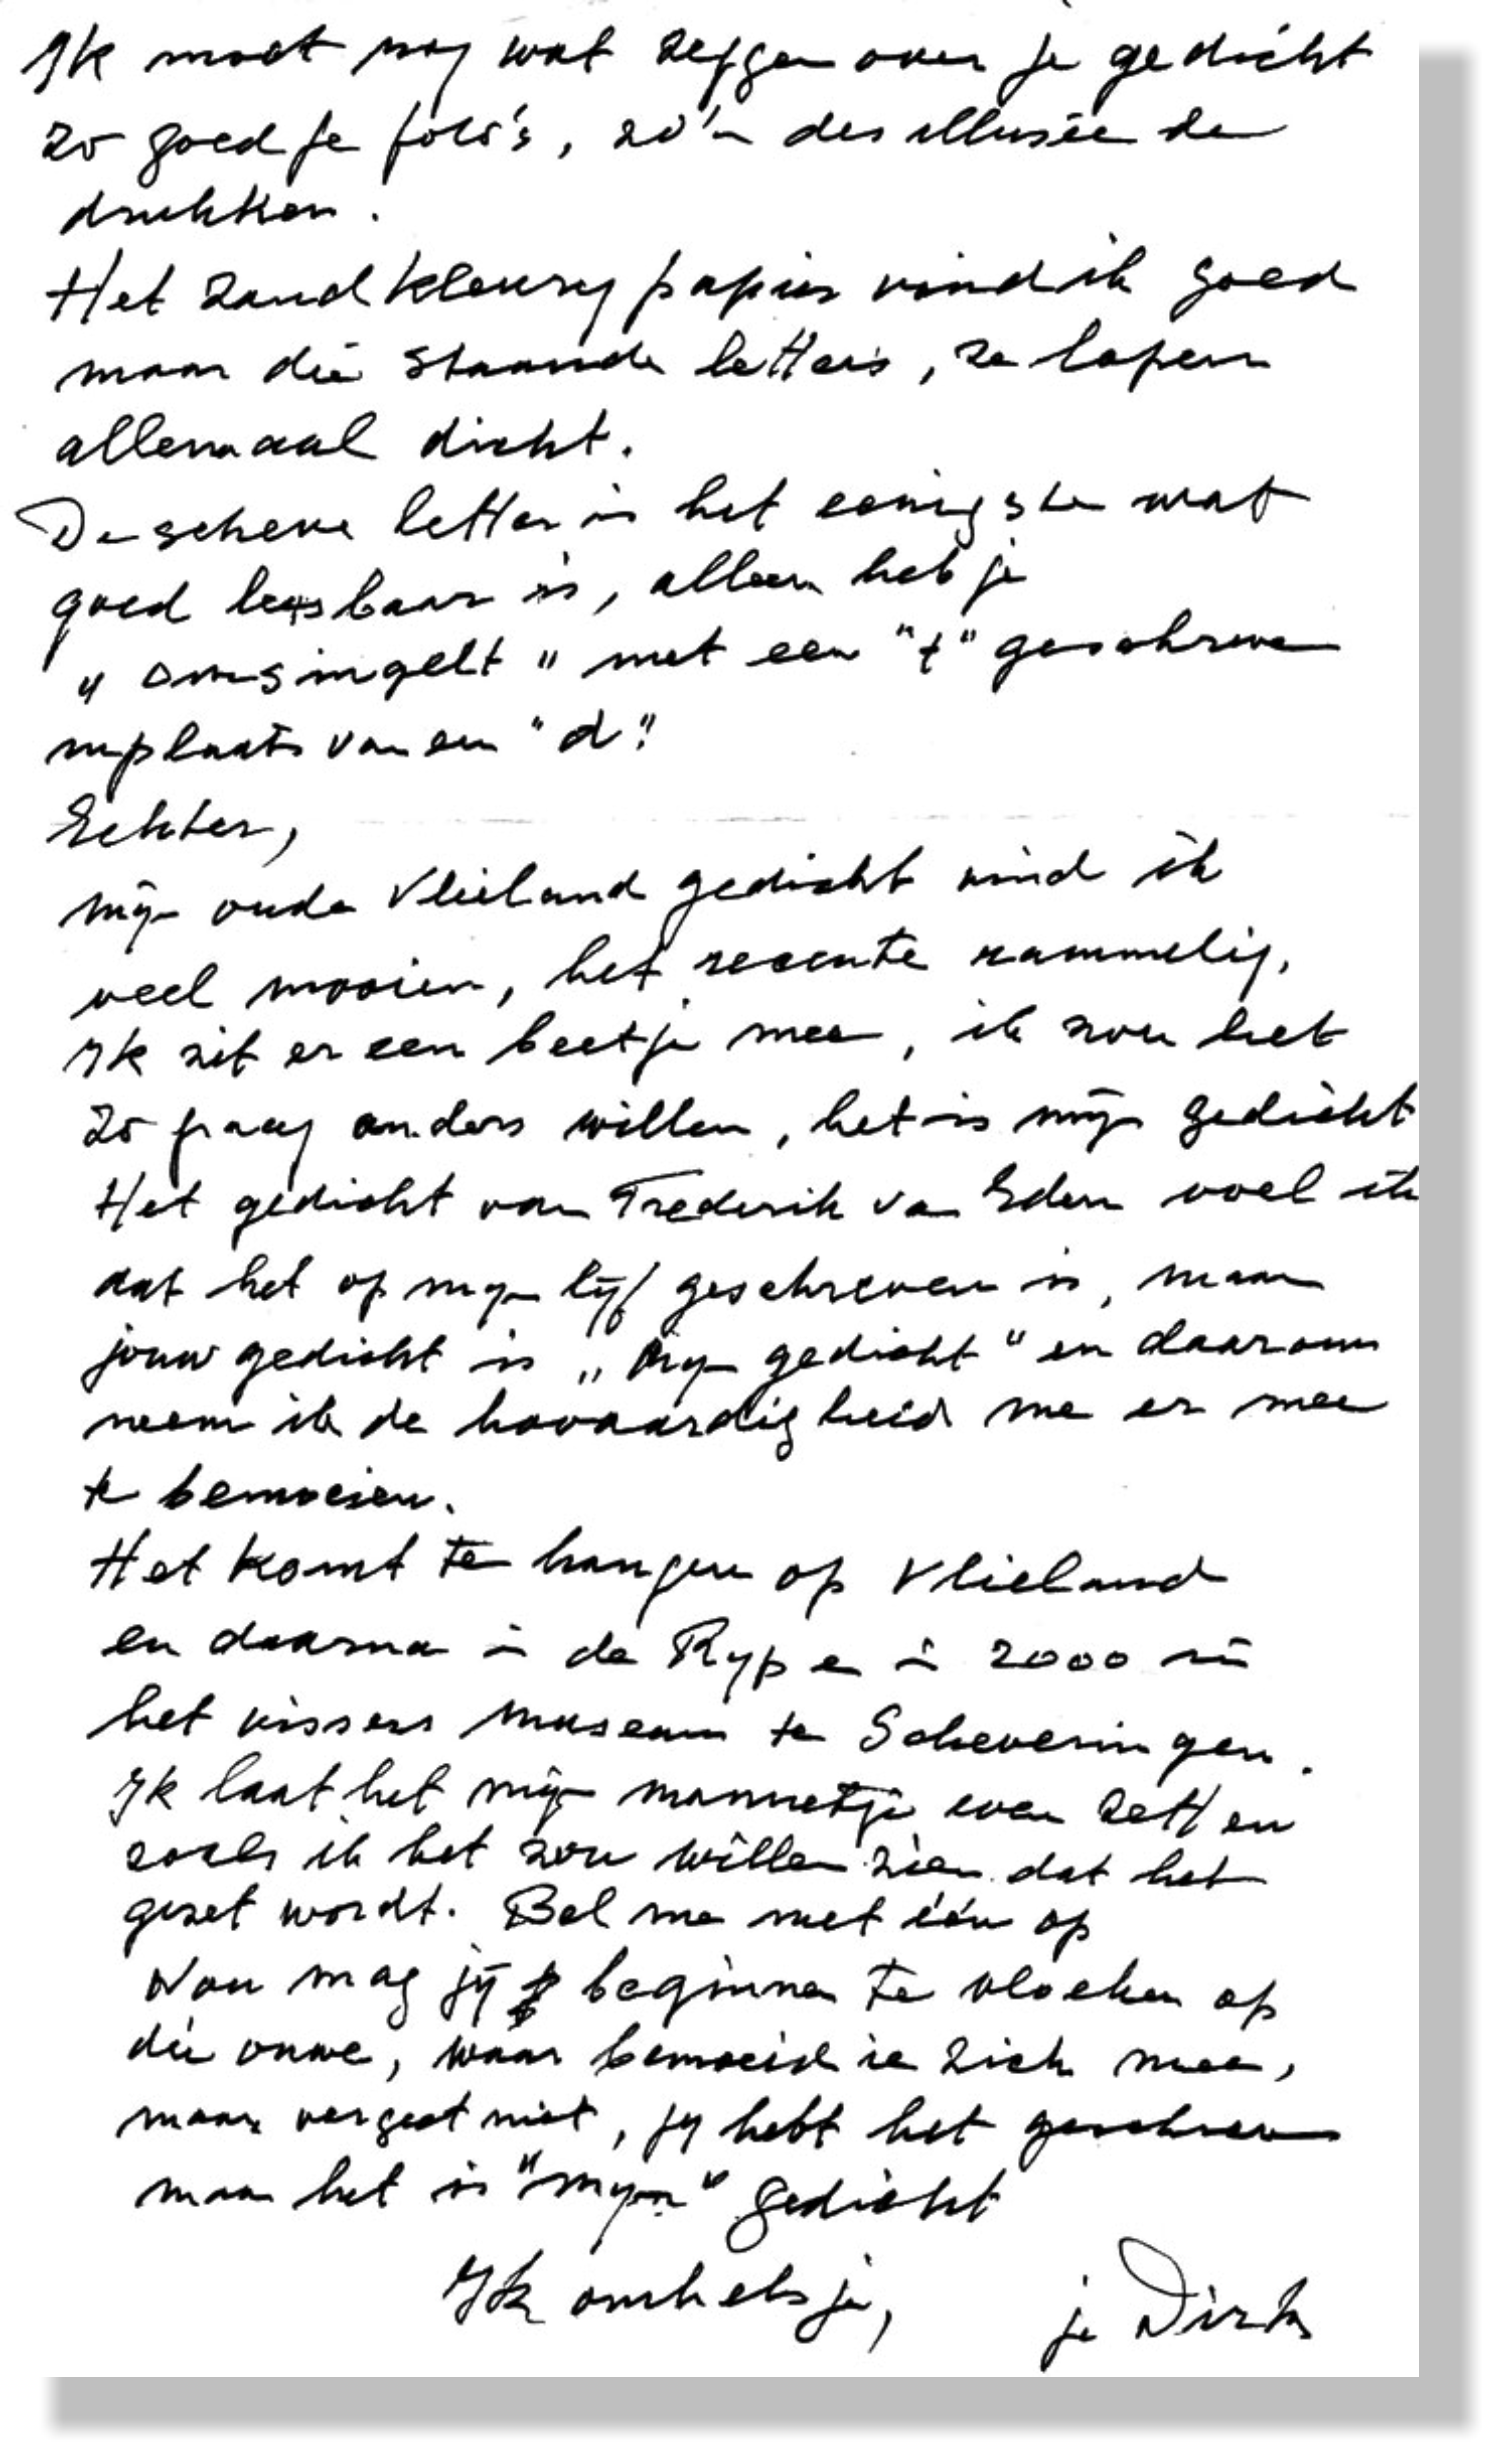 Ik moet nog wat zeggen over je gedicht
Zo goed je foto's, zo'n des illusie de
drukken.
Het zandkleurig papier vind ik goed
maar die staande letters, ze lopen
allemaal dicht.
De scheve letter is het eenigste wat
goed leesbaar is, alleen heb je
„omsingelt" met een "t" geschreven
inplaats van een "d".
Echter,
mijn oude Vlieland gedicht vind ik
veel mooier, het recente rammelig.
Ik zit er een beetje mee, ik zou het
zo graag anders willen, het is mijn gedicht
Het gedicht van Frederik van Eden voel ik
dat het op mijn lijf geschreven is, maar
jouw gedicht is „Mijn gedicht" en daarom
neem ik de hovaardigheid me er mee
te bemoeien.
Het komt te hangen op Vlieland
en daarna in de Ryp en in 2000 in
het vissers museum te Scheveningen.
Ik laat het mijn mannetje even zetten
zoals ik het zou willen zien dat het
gezet wordt. Bel me met één op
Nou mag jij beginnen te vloeken op
die ouwe, waar bemoeid ie zich mee,
maar vergeet niet, jy hebt het geschreven
maar het is "mijn" gedicht
Ik omhels je,
je Dirk